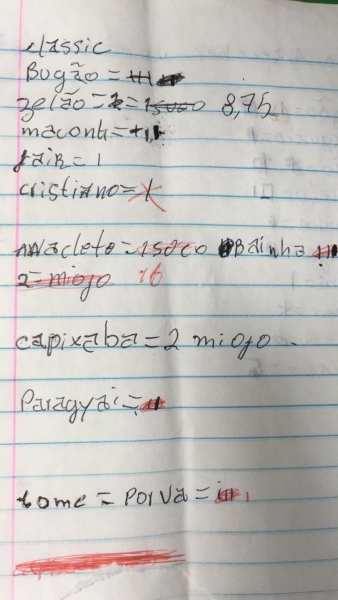 classic
Bugão =
zelão = 8,75
maconh =
Jair = 1
cristiano =
Anacleto = Bainha
2 = miojo 16
capixaba = 2 miojo
Paragyai =
tome = Porva =